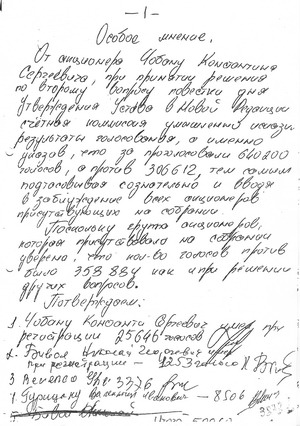 — 1 —
Особое мнение.
От акционера Чобану Константина
Сергеевича, при принятии решения
по второму вопросу повестки дня
Утверждения Устава в Новой Редакции
счётная комиссия умышленно исказила
результаты голосования, а именно
указав, что за проголосовали 640200
голосов, а против 306612, тем самым
подтасовывая сознательно и вводя
в заблуждение всех акционеров
присутствующих на собрании.
Поскольку группа акционеров,
которая присутствовала на собрании
уверена, что кол-во голосов против
было 358884 как и при решении
других вопросов.
Подтверждаем:
1. Чобану Константин Сергеевич при
регистрации 25646 голосов
2. Николай Георгиевич
при регистрации — 12532 голоса
3. 3376
4. Иванович — 8506